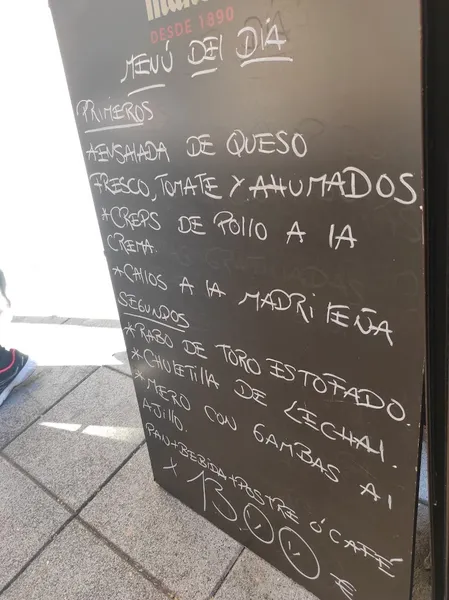 DESDE 1890
MENÚ DEL DÍA
PRIMEROS
*ENSALADA DE QUESO
FRESCO, TOMATE Y AHUMADOS
*CREPS DE POLLO A LA
CREMA.
*CALLOS A LA MADRILEÑA
SEGUNDOS
*RABO DE TORO ESTOFADO.
*CHULETILLA DE LECHAL.
*MERO CON GAMBAS AL
AJILLO.
PAN+BEBIDA+POSTRE Ó CAFÉ
x 13.00 €